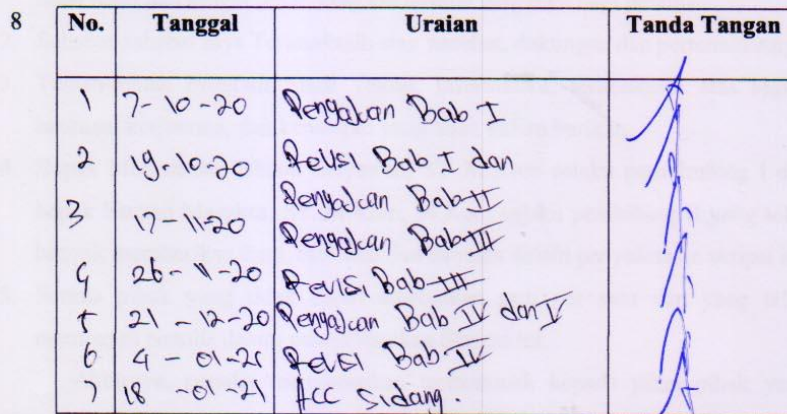 8
No. Tanggal Uraian Tanda Tangan
1 7-10-20 Pengajuan Bab I
2 19-10-20 Revisi Bab I dan
Pengajuan Bab II
3 17-11-20 Pengajuan Bab III
4 26-11-20 Revisi Bab III
5 21-12-20 Pengajuan Bab IV dan V
6 4-01-21 Revisi Bab IV
7 18-01-21 Acc Sidang.